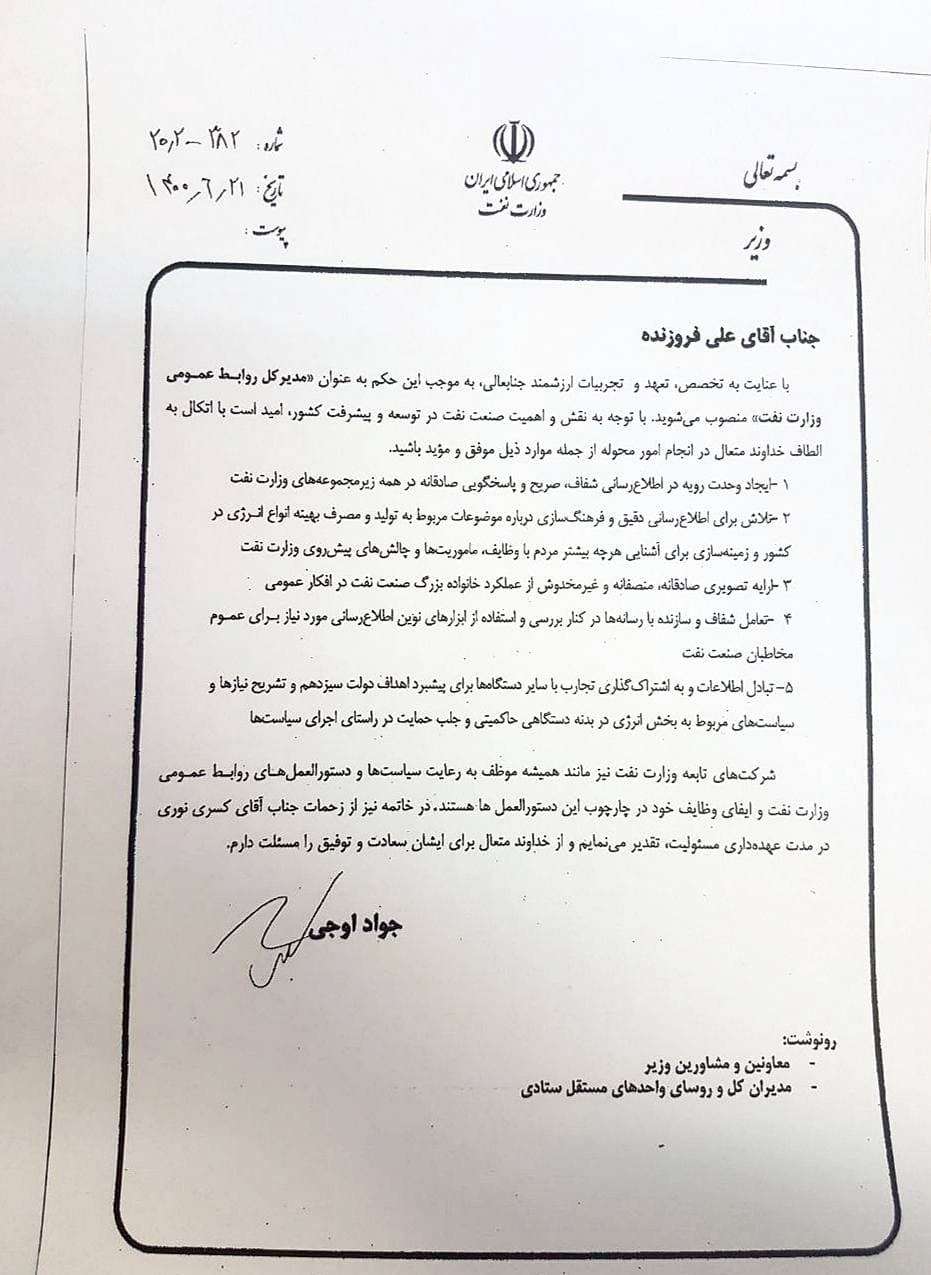 بسمه تعالی
جمهوری اسلامی ایران
وزارت نفت
وزیر
شماره: ۳۸۲ – ۲۰٫۲
تاریخ: ۱۴۰۰٫۶٫۲۱
پیوست:
جناب آقای علی فروزنده
با عنایت به تخصص، تعهد و تجربیات ارزشمند جنابعالی، به موجب این حکم به عنوان «مدیرکل روابط عمومی
وزارت نفت» منصوب می‌شوید. با توجه به نقش و اهمیت صنعت نفت در توسعه و پیشرفت کشور، امید است با اتکال به
الطاف خداوند متعال در انجام امور محوله از جمله موارد ذیل موفق و مؤید باشید.
۱ -ایجاد وحدت رویه در اطلاع‌رسانی شفاف، صریح و پاسخگویی صادقانه در همه زیرمجموعه‌های وزارت نفت
۲ -تلاش برای اطلاع‌رسانی دقیق و فرهنگ‌سازی درباره موضوعات مربوط به تولید و مصرف بهینه انواع انرژی در
کشور و زمینه‌سازی برای آشنایی هرچه بیشتر مردم با وظایف، ماموریت‌ها و چالش‌های پیش‌روی وزارت نفت
۳ -ارایه تصویری صادقانه، منصفانه و غیرمخدوش از عملکرد خانواده بزرگ صنعت نفت در افکار عمومی
۴ -تعامل شفاف و سازنده با رسانه‌ها در کنار بررسی و استفاده از ابزارهای نوین اطلاع‌رسانی مورد نیاز برای عموم
مخاطبان صنعت نفت
۵- تبادل اطلاعات و به اشتراک‌گذاری تجارب با سایر دستگاه‌ها برای پیشبرد اهداف دولت سیزدهم و تشریح نیازها و
سیاست‌های مربوط به بخش انرژی در بدنه دستگاهی حاکمیتی و جلب حمایت در راستای اجرای سیاست‌ها
شرکت‌های تابعه وزارت نفت نیز مانند همیشه موظف به رعایت سیاست‌ها و دستورالعمل‌های روابط عمومی
وزارت نفت و ایفای وظایف خود در چارچوب این دستورالعمل ها هستند. در خاتمه نیز از زحمات جناب آقای کسری نوری
در مدت عهده‌داری مسئولیت، تقدیر می‌نمایم و از خداوند متعال برای ایشان سعادت و توفیق را مسئلت دارم.
جواد اوجی
رونوشت:
- معاونین و مشاورین وزیر
- مدیران کل و روسای واحدهای مستقل ستادی